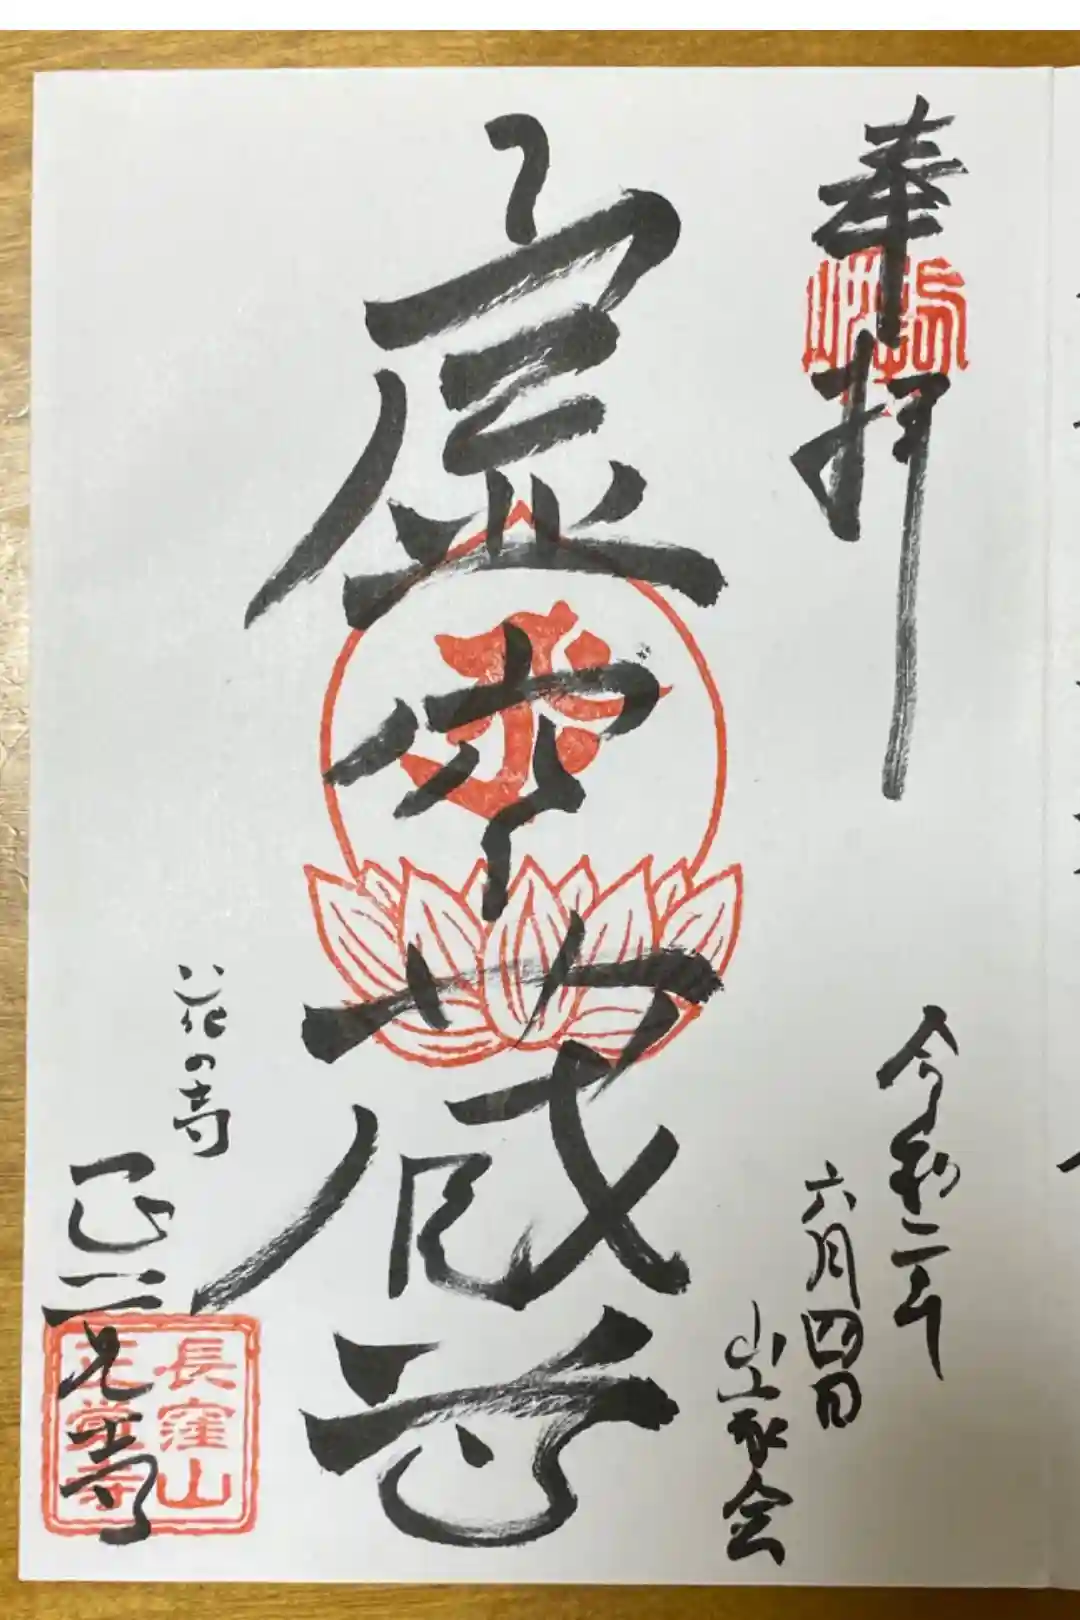 奉拝
令和二年
六月四日
山家会
虚空蔵尊
花の寺
正覚寺
長窪山
正覚寺